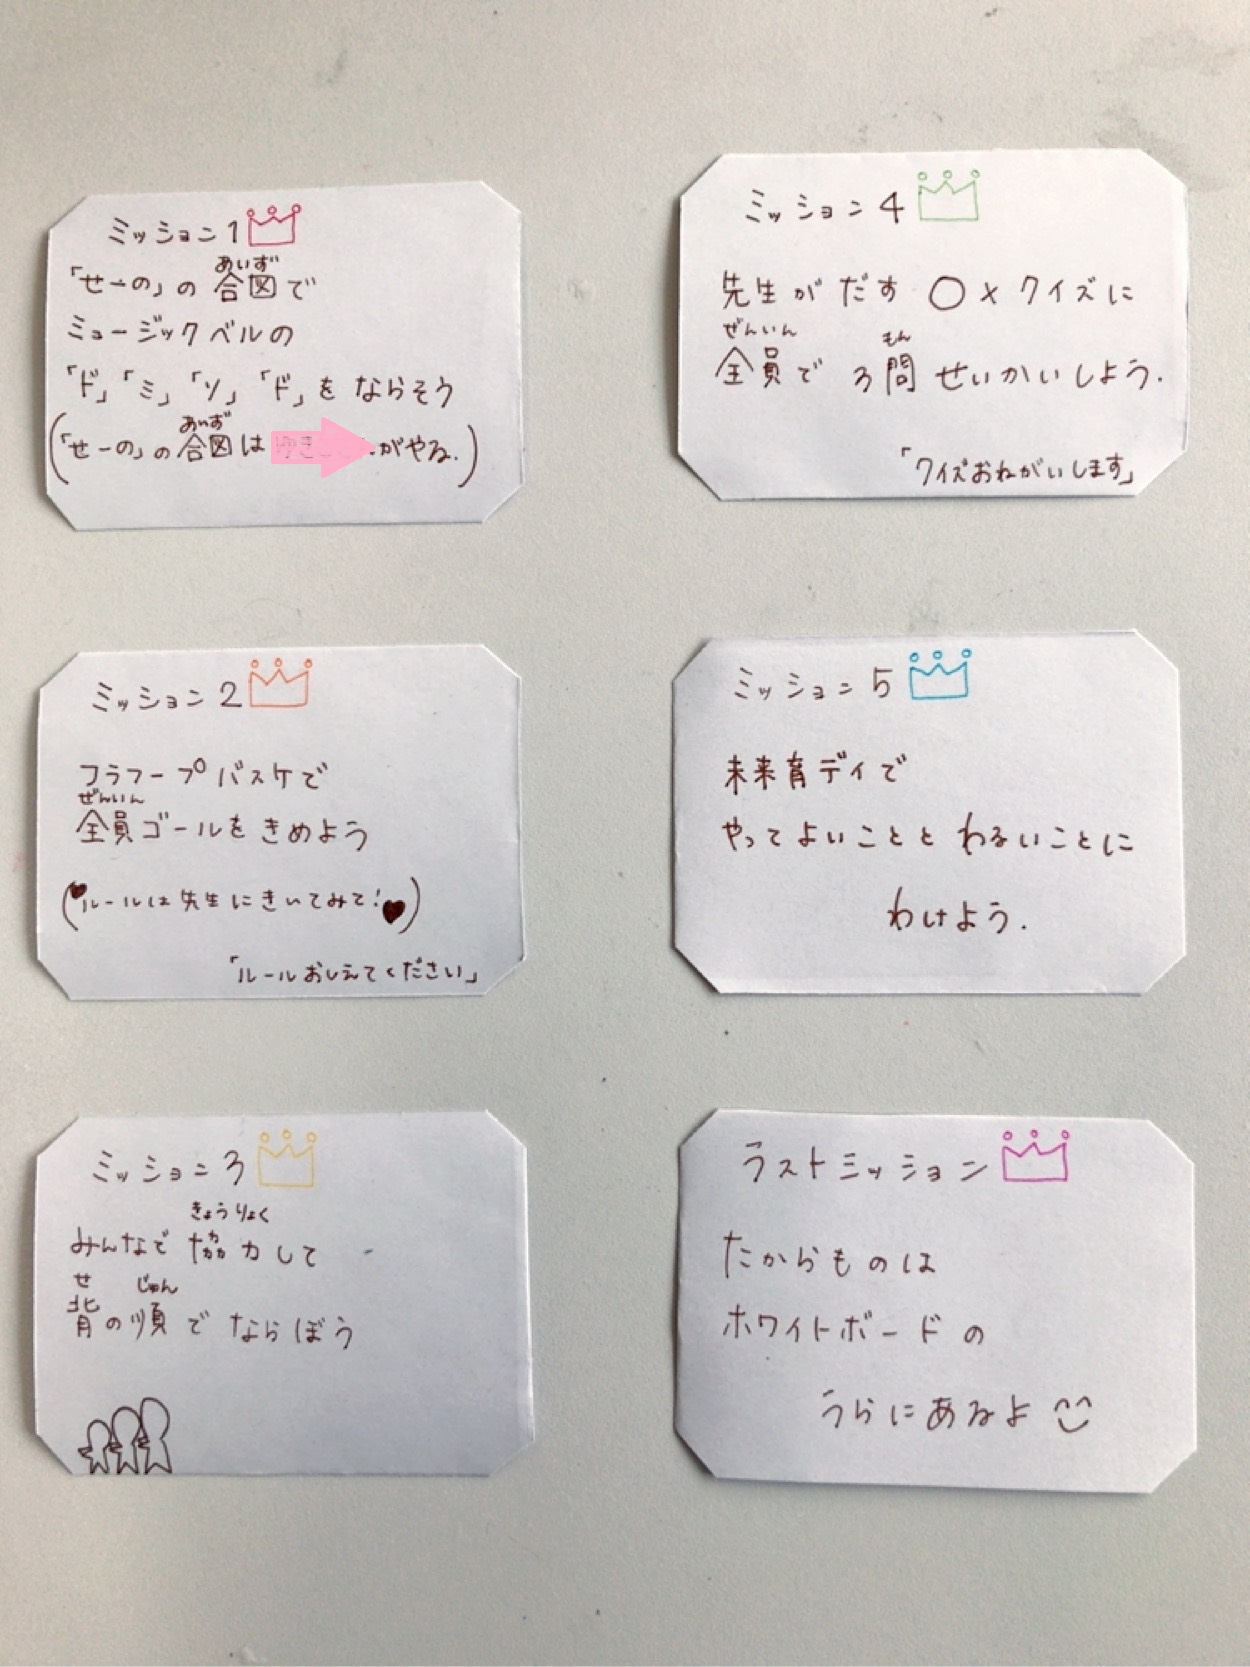 ミッション1
あいず
「せーの」の合図で
ミュージックベルの
「ド」「ミ」「ソ」「ド」をならそう
あいず
(「せーの」の合図は がやる.)
ミッション2
フラフープバスケで
ぜんいん
全員ゴールをきめよう
(ルールは先生にきいてみて!)
「ルールおしえてください」
ミッション3
きょうりょく
みんなで協力して
せ じゅん
背の順でならぼう
ミッション4
先生がだす〇×クイズに
ぜんいん もん
全員で3問せいかいしよう.
「クイズおねがいします」
ミッション5
未来育デイで
やってよいこととわるいことに
わけよう.
ラストミッション
たからものは
ホワイトボードの
うらにあるよ